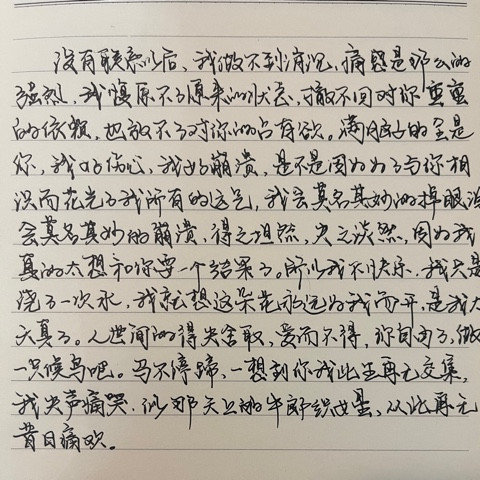 没有联系以后、我做不到消沉、痛感是那么的
强烈，我恢复不了原来的状态，撤不回对你重重
的依赖，也放不下对你的占有欲。满脑子的全是
你，我好伤心，我好崩溃，是不是因为为了与你相
识而花光了我所有的运气，我会莫名其妙的掉眼泪
会莫名其妙的崩溃，得之坦然，失之淡然，因为我
真的太想和你要一个结果了。所以我不快乐，我只是
浇了一次水，我就想这朵花永远为我而开，是我太
天真了。人世间的得失舍取，爱而不得，你自由了，做
一只候鸟吧。马不停蹄，一想到你我此生再无交集，
我失声痛哭，似那天上的牛郎织女星，从此再无
昔日痛欢。